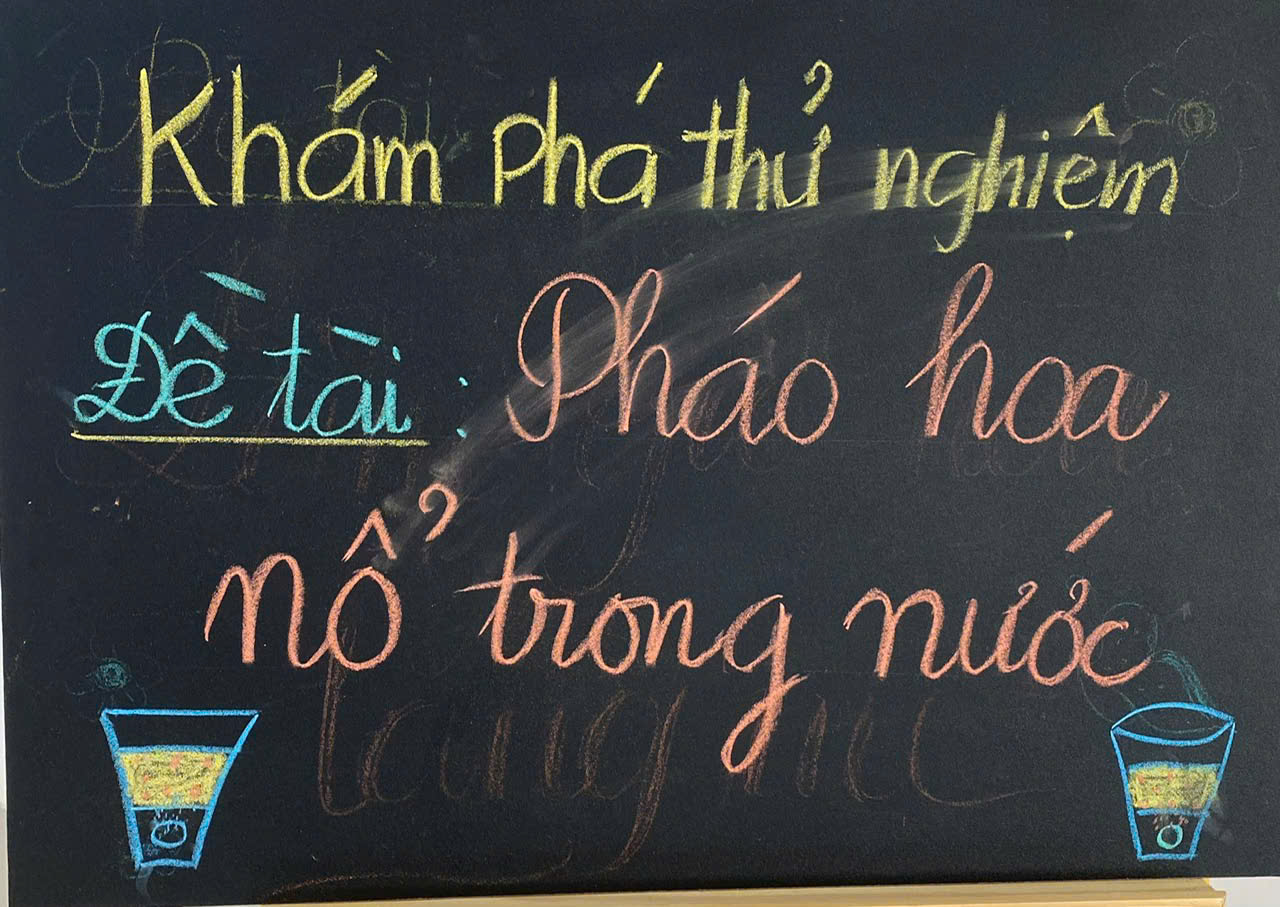 Khám phá thử nghiệm
Đề tài: Pháo hoa
nổ trong nước